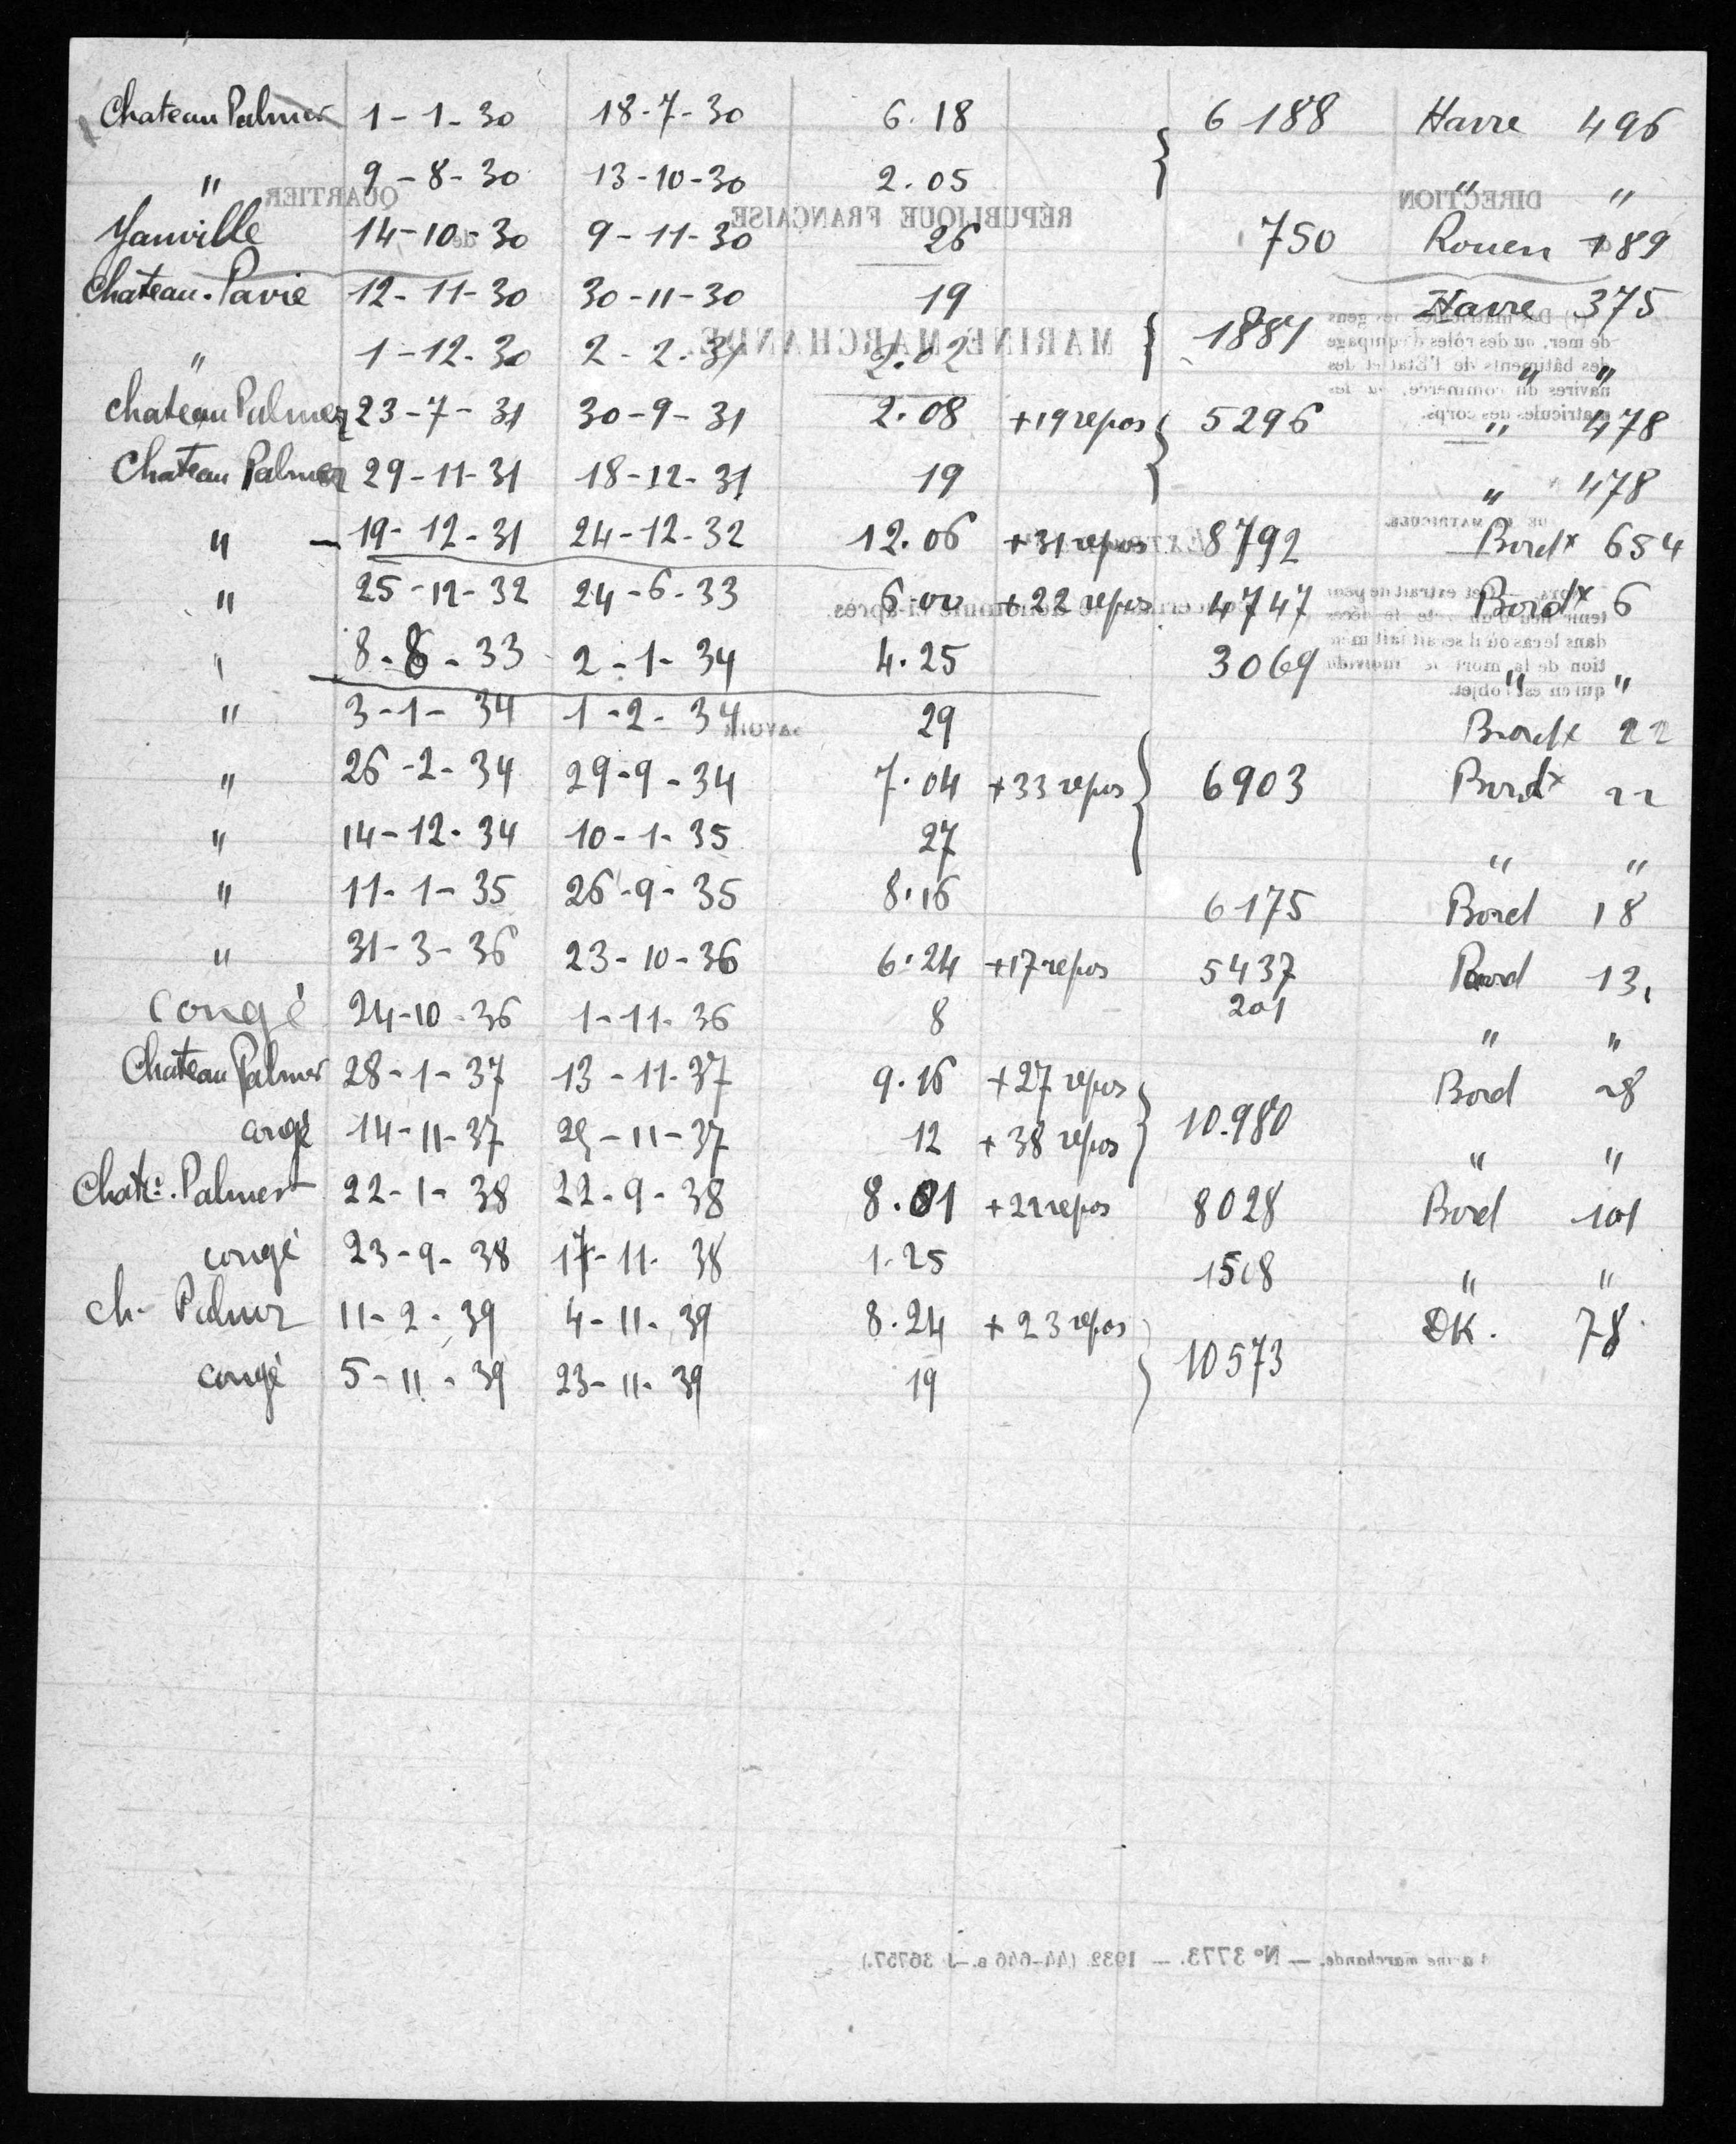 Chateau Palmer 1-1-30 18-7-30 6.18 6188 Havre 496
" 9-8-30 13-10-30 2.05 " "
Yainville 14-10-30 9-11-30 26 750 Rouen 189
Chateau-Pavie 12-11-30 30-11-30 19 Havre 375
" 1-12-30 2-2-31 2.02 1887 " "
Chateau Palmer 23-7-31 30-9-31 2.08 +19 repos 5296 " 478
Chateau Palmer 29-11-31 18-12-31 19 " 478
" 19-12-31 24-12-32 12.06 +31 repos 8792 Bordx 654
" 25-12-32 24-6-33 6.00 +22 repos 4747 Bordx 6
" 8-8-33 2-1-34 4.25 3069 " "
" 3-1-34 1-2-34 29 Bordx 22
" 26-2-34 29-9-34 7.04 +33 repos 6903 Bordx 22
" 14-12-34 10-1-35 27 " "
" 11-1-35 26-9-35 8.16 6175 Bord 18
" 31-3-36 23-10-36 6.24 +17 repos 5437 Bord 13
congé 24-10-36 1-11-36 8 201 " "
Chateau Palmer 28-1-37 13-11-37 9.16 +27 repos Bord 28
congé 14-11-37 25-11-37 12 +38 repos 10.980 " "
Chatu. Palmer 22-1-38 22-9-38 8.01 +21 repos 8028 Bord 101
congé 23-9-38 17-11-38 1.25 1508 " "
Ch- Palmer 11-2-39 4-11-39 8.24 +23 repos DK. 78
congé 5-11-39 23-11-39 19 10573
QUARTIER
de
RÉPUBLIQUE FRANÇAISE
DIRECTION
MARINE MARCHANDE
SAVOIR
Marine marchande. — N° 3773. — 1932. (44-646 B.-J 36757.)